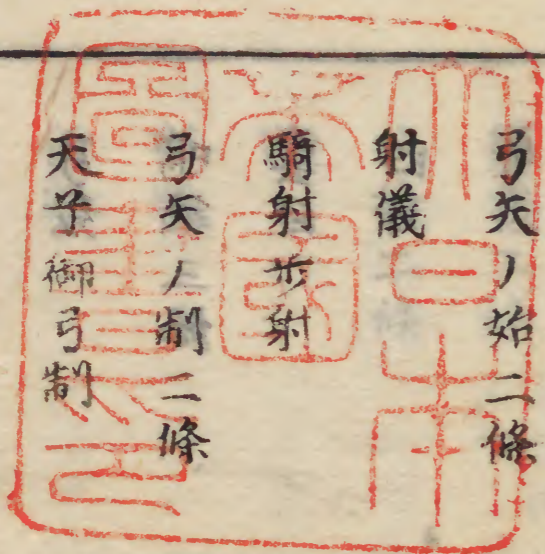 弓矢ノ始二條
射儀
騎射歩射
弓矢ノ制二條
天子御弓制